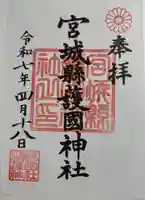 奉拝
宮城縣護國神社
宮城縣
社之印
令和七年四月十八日